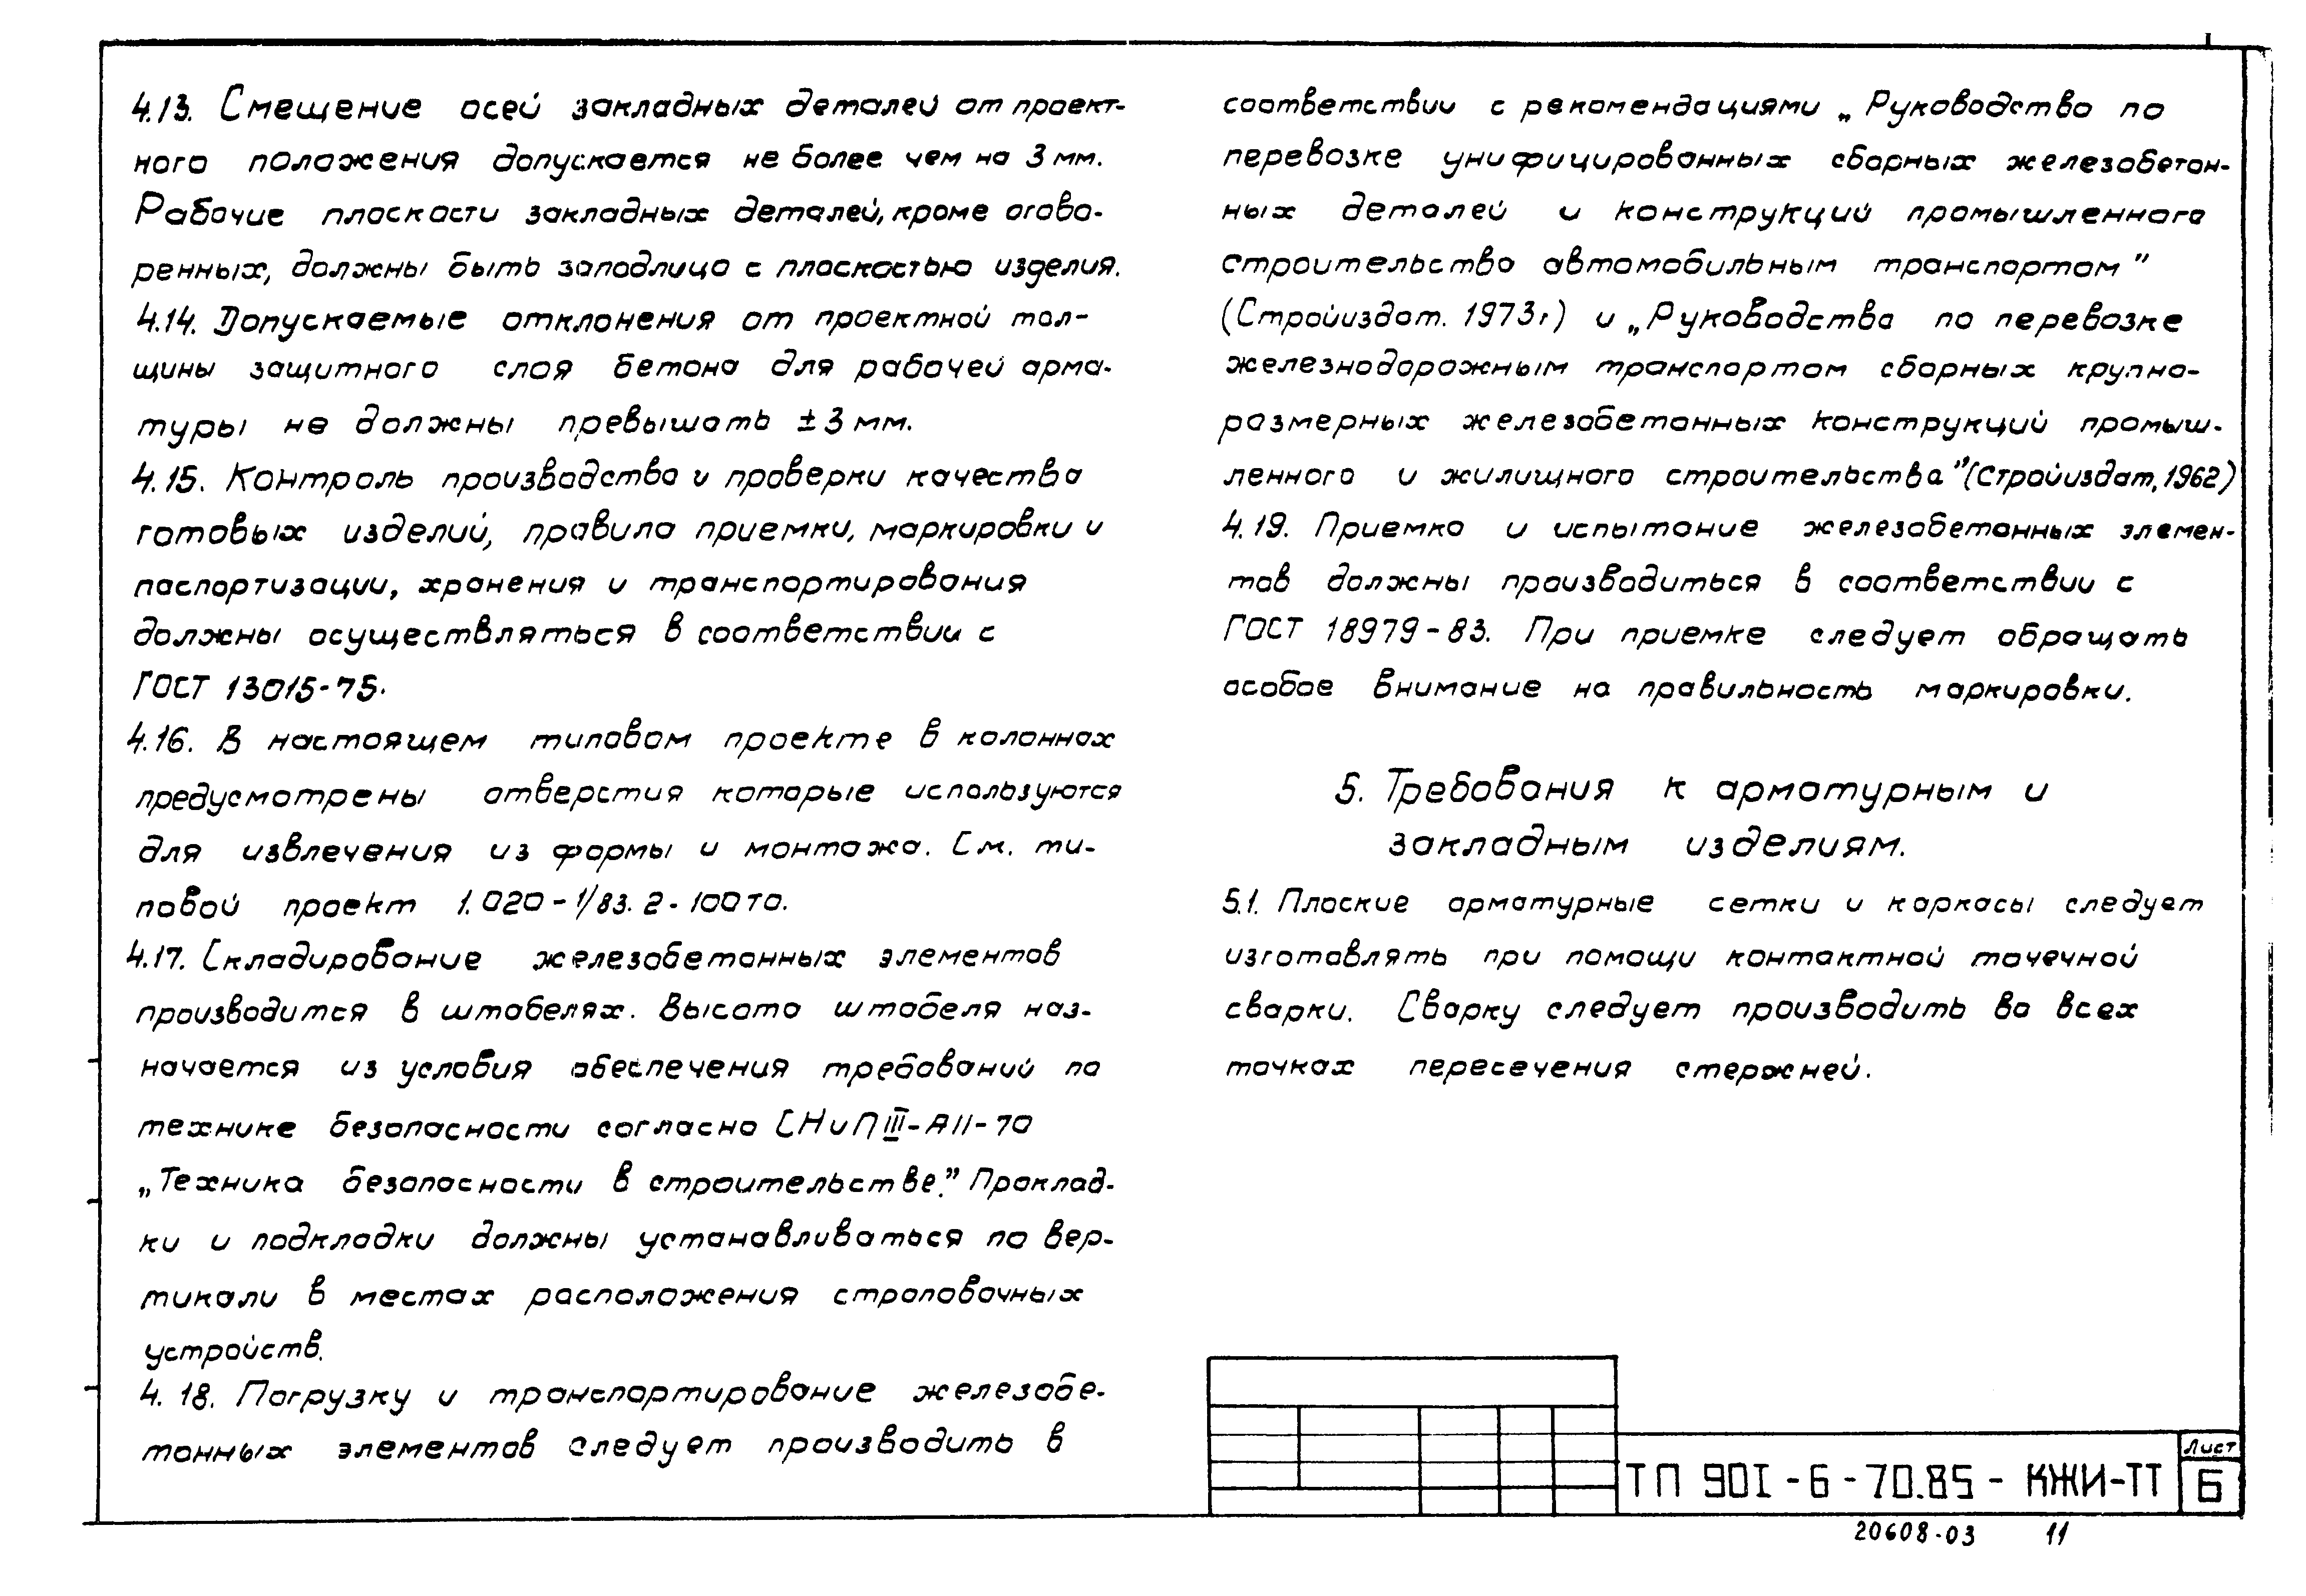 4.13. Смещение осей закладных деталей от проект-
ного положения допускается не более чем на 3 мм.
Рабочие плоскости закладных деталей, кроме огово-
ренных, должны быть заподлицо с плоскостью изделия.
4.14. Допускаемые отклонения от проектной тол-
щины защитного слоя бетона для рабочей арма-
туры не должны превышать ± 3 мм.
4.15. Контроль производства и проверки качества
готовых изделий, правила приемки, маркировки и
паспортизации, хранения и транспортирования
должны осуществляться в соответствии с
ГОСТ 13015-75.
4.16. В настоящем типовом проекте в колоннах
предусмотрены отверстия которые используются
для извлечения из формы и монтажа. См. ти-
повой проект 1.020-1/83. 2-100 то.
4.17. Складирование железобетонных элементов
производится в штабелях. Высота штабеля наз-
начается из условия обеспечения требований по
технике безопасности согласно СНиП III-А11-70
„Техника безопасности в строительстве." Проклад-
ки и подкладки должны устанавливаться по вер-
тикали в местах расположения строповочных
устройств.
4.18. Погрузку и транспортирование железобе-
тонных элементов следует производить в
соответствии с рекомендациями „Руководство по
перевозке унифицированных сборных железобетон-
ных деталей и конструкций промышленного
строительства автомобильным транспортом"
(Стройиздат. 1973г) и „Руководства по перевозке
железнодорожным транспортом сборных крупно-
размерных железобетонных конструкций промыш-
ленного и жилищного строительства" (Стройиздат, 1962)
4.19. Приемка и испытание железобетонных элемен-
тов должны производиться в соответствии с
ГОСТ 18979-83. При приемке следует обращать
особое внимание на правильность маркировки.
5. Требования к арматурным и
закладным изделиям.
5.1. Плоские арматурные сетки и каркасы следует
изготовлять при помощи контактной точечной
сварки. Сварку следует производить во всех
точках пересечения стержней.
ТП 901-6-70.85 - КЖИ-ТТ
Лист
6
20608-03 11